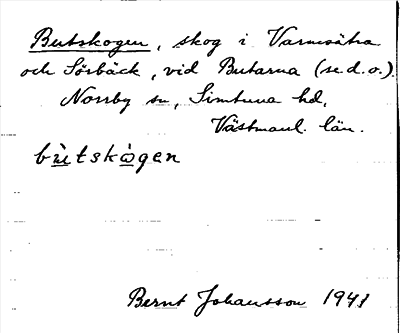 Butskogen, skog i Varmsätra
och Sörbäck, vid Butarna (se.d.o.).
Norrby sn, Simtuna hd,
Västmanl. län.
bùtskògen
Bernt Johansson 1941